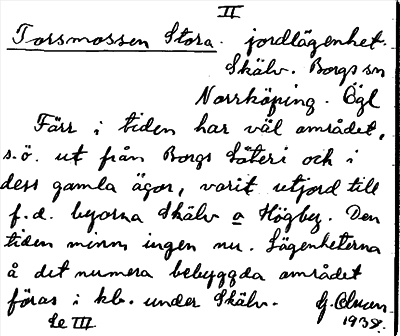 II
Torsmossen Stora. jordlägenhet.
Skälv. Borgs sn
Norrköping. Ögl
Förr i tiden har väl området,
s.ö. ut från Borgs Säteri och i
dess gamla ägor, varit utjord till
f.d. byarna Skälv o Högby. Den
tiden minns ingen nu. Lägenheterna
å det numera bebyggda området
föras i kb. under Skälv.
Se III 1938.